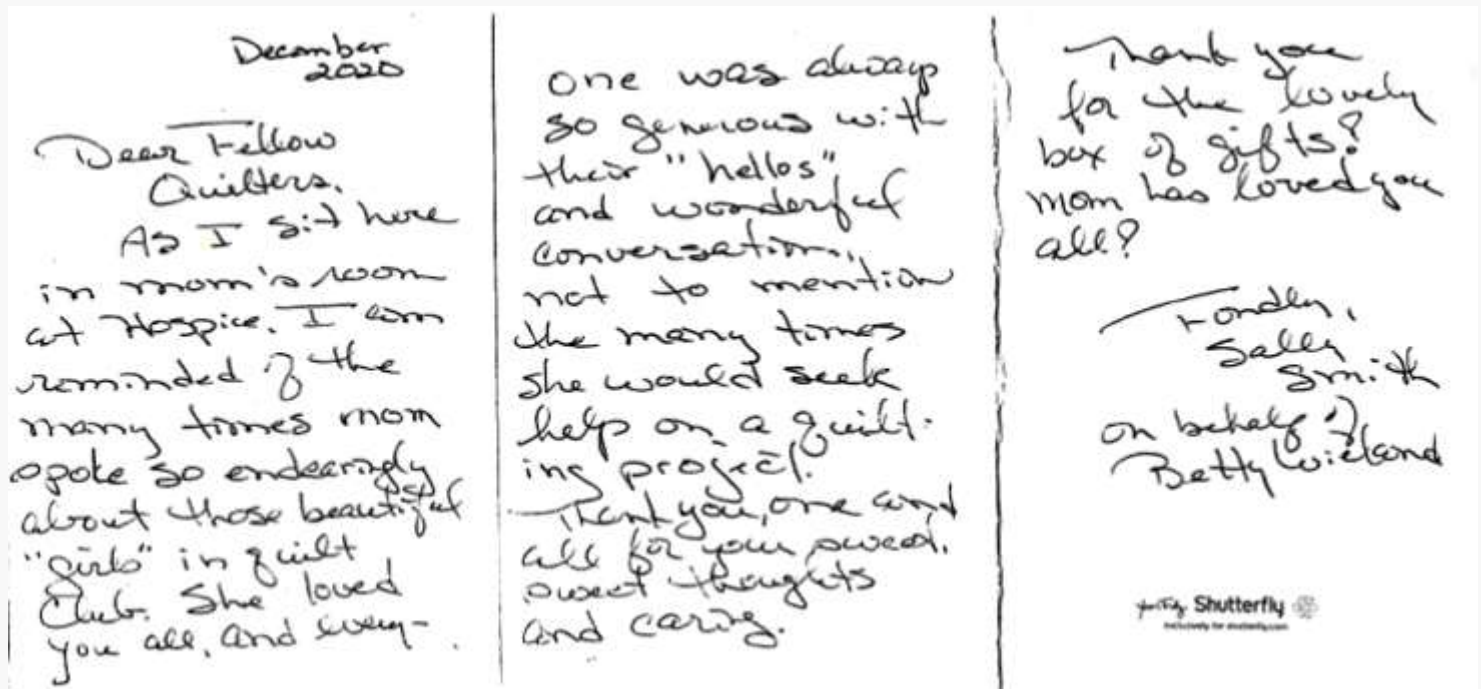 December
2020
Dear Fellow
Quilters.
As I sit here
in mom's room
at Hospice. I am
reminded of the
many times mom
spoke so endearingly
about those beautiful
"girls" in quilt
Club. She loved
you all, and every-
one was always
so generous with
their "hellos"
and wonderful
conversation,
not to mention
the many times
she would seek
help on a quilt-
ing project.
Thank you, one and
all for your sweet,
sweet thoughts
and caring.
Thank you
for the lovely
box of gifts!
mom has loved you
all!
Fondly,
Sally
Smith
on behalf of
Betty Wieland
Shutterfly
exclusively for shutterfly.com